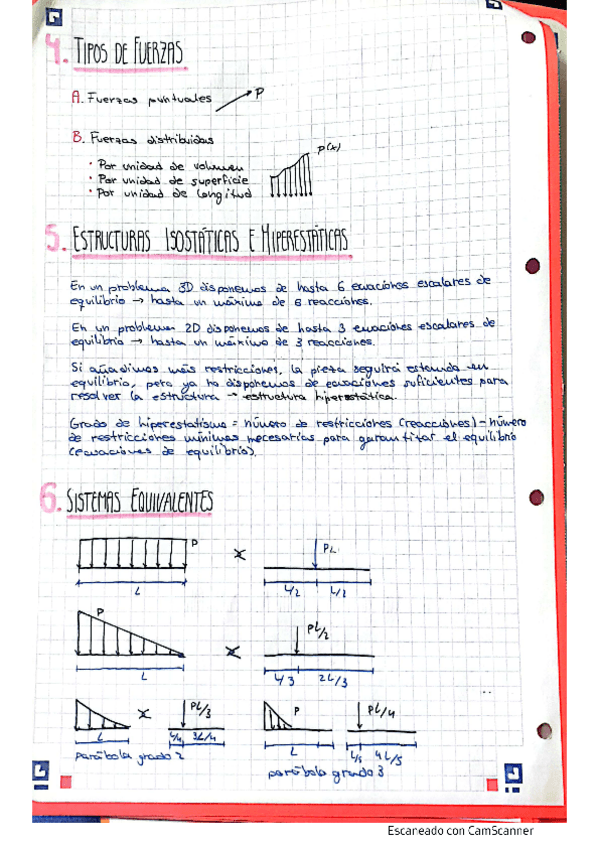 4. TIPOS DE FUERZAS
A. Fuerzas puntuales P
B. Fuerzas distribuidas
P(x)
· Por unidad de volumen
· Por unidad de superficie
· Por unidad de longitud
5. ESTRUCTURAS ISOSTÁTICAS E HIPERESTÁTICAS
En un problema 3D disponemos de hasta 6 ecuaciones escalares de
equilibrio → hasta un máximo de 6 reacciones.
En un problema 2D disponemos de hasta 3 ecuaciones escalares de
equilibrio → hasta un máximo de 3 reacciones.
Si añadimos más restricciones, la pieza seguirá estando en
equilibrio, pero ya no disponemos de ecuaciones suficientes para
resolver la estructura → estructura hiperestática.
Grado de hiperestatismo = número de restricciones (reacciones) - número
de restricciones mínimas necesarias para garantizar el equilibrio
(ecuaciones de equilibrio).
6. SISTEMAS EQUIVALENTES
P PL
L L/2 L/2
P PL/2
L L/3 2L/3
PL/3 P PL/4
L L/4 3L/4 L L/5 4L/5
parábola grado 2
parábola grado 3
Escaneado con CamScanner